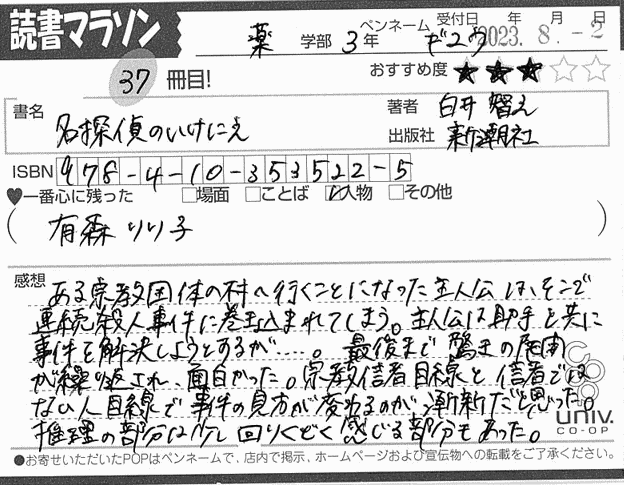 読書マラソン
薬 学部 3年 ペンネーム ギユウ 受付日 年 月 日
2023.8.-2
37 冊目! おすすめ度 ★★★☆☆
書名 名探偵のいけにえ
著者 白井 智之
出版社 新潮社
ISBN 978-4-10-353522-5
♥一番心に残った □場面 □ことば ☑人物 □その他
(有森 りり子)
感想
ある宗教団体の村へ行くことになった主人公は、そこで
連続殺人事件に巻き込まれてしまう。主人公は助手と共に
事件を解決しようとするが……。最後まで驚きの展開
が繰り返され、面白かった。宗教信者目線と信者では
ない人目線で事件の見方が変わるのが、漸新だと思った。
推理の部分は少し回りくどく感じる部分もあった。
coop
univ.
CO-OP
●お寄せいただいたPOPはペンネームで、店内で掲示、ホームページおよび宣伝物への転載をご了承ください。